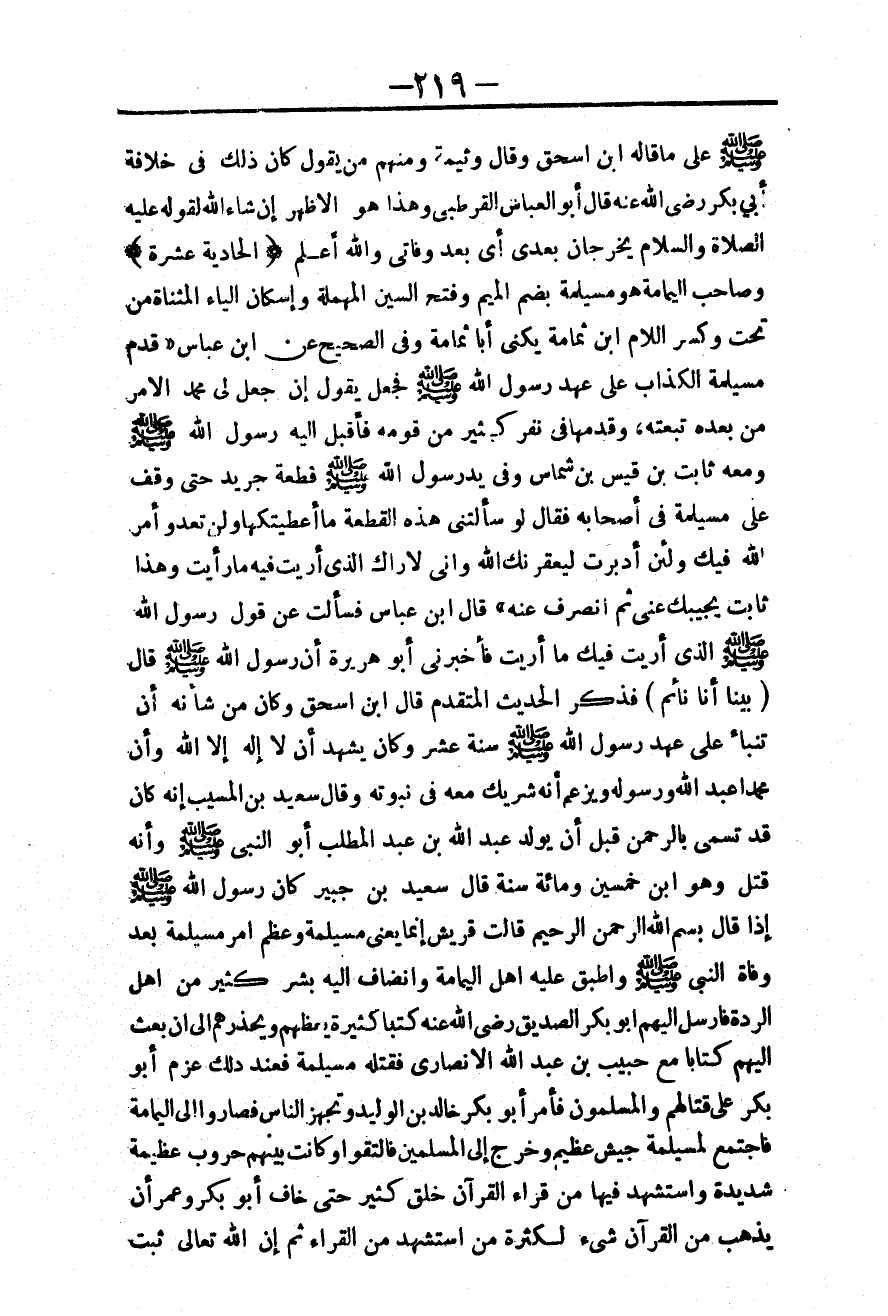 — ٢١٩ —
ﷺ على ماقاله ابن اسحق وقال وثيمة ومنهم من يقول كان ذلك فى خلافة
أبي بكر رضى الله عنه قال أبو العباس القرطبى وهذا هو الاظهر إن شاء الله لقوله عليه
الصلاة والسلام يخرجان بعدى أى بعد وفاتى والله أعلم ﴿ الحادية عشرة ﴾
وصاحب اليمامة هو مسيلمة بضم الميم وفتح السين المهملة وإسكان الياء المثناة من
تحت وكسر اللام ابن ثمامة يكنى أبا ثمامة وفى الصحيح عن ابن عباس «قدم
مسيلمة الكذاب على عهد رسول الله ﷺ فجعل يقول إن جعل لى محمد الامر
من بعده تبعته، وقدمها فى نفر كثير من قومه فأقبل اليه رسول الله ﷺ
ومعه ثابت بن قيس بن شماس وفى يد رسول الله ﷺ قطعة جريد حتى وقف
على مسيلمة فى أصحابه فقال لو سألتنى هذه القطعة ما أعطيتكها ولن تعدو أمر
الله فيك ولئن أدبرت ليعقرنك الله وانى لاراك الذى أريت فيه ما رأيت وهذا
ثابت يجيبك عنى ثم انصرف عنه» قال ابن عباس فسألت عن قول رسول الله
ﷺ الذى أريت فيك ما أريت فأخبرنى أبو هريرة أن رسول الله ﷺ قال
( بينا أنا نائم ) فذكر الحديث المتقدم قال ابن اسحق وكان من شأنه أن
تنباء على عهد رسول الله ﷺ سنة عشر وكان يشهد أن لا إله إلا الله وأن
محمدا عبد الله ورسوله ويزعم أنه شريك معه فى نبوته وقال سعيد بن المسيب إنه كان
قد تسمى بالرحمن قبل أن يولد عبد الله بن عبد المطلب أبو النبى ﷺ وأنه
قتل وهو ابن خمسين ومائة سنة قال سعيد بن جبير كان رسول الله ﷺ
إذا قال بسم الله الرحمن الرحيم قالت قريش إنما يعنى مسيلمة وعظم امر مسيلمة بعد
وفاة النبى ﷺ واطبق عليه اهل اليمامة وانضاف اليه بشر كثير من اهل
الردة فارسل اليهم ابو بكر الصديق رضى الله عنه كتبا كثيرة يعظهم ويحذرهم الى ان بعث
اليهم كتابا مع حبيب بن عبد الله الانصارى فقتله مسيلمة فعند ذلك عزم أبو
بكر على قتالهم والمسلمون فأمر أبو بكر خالد بن الوليد وتجهز الناس فصاروا الى اليمامة
فاجتمع لمسيلمة جيش عظيم وخرج إلى المسلمين فالتقوا وكانت بينهم حروب عظيمة
شديدة واستشهد فيها من قراء القرآن خلق كثير حتى خاف أبو بكر وعمر أن
يذهب من القرآن شىء لكثرة من استشهد من القراء ثم إن الله تعالى ثبت